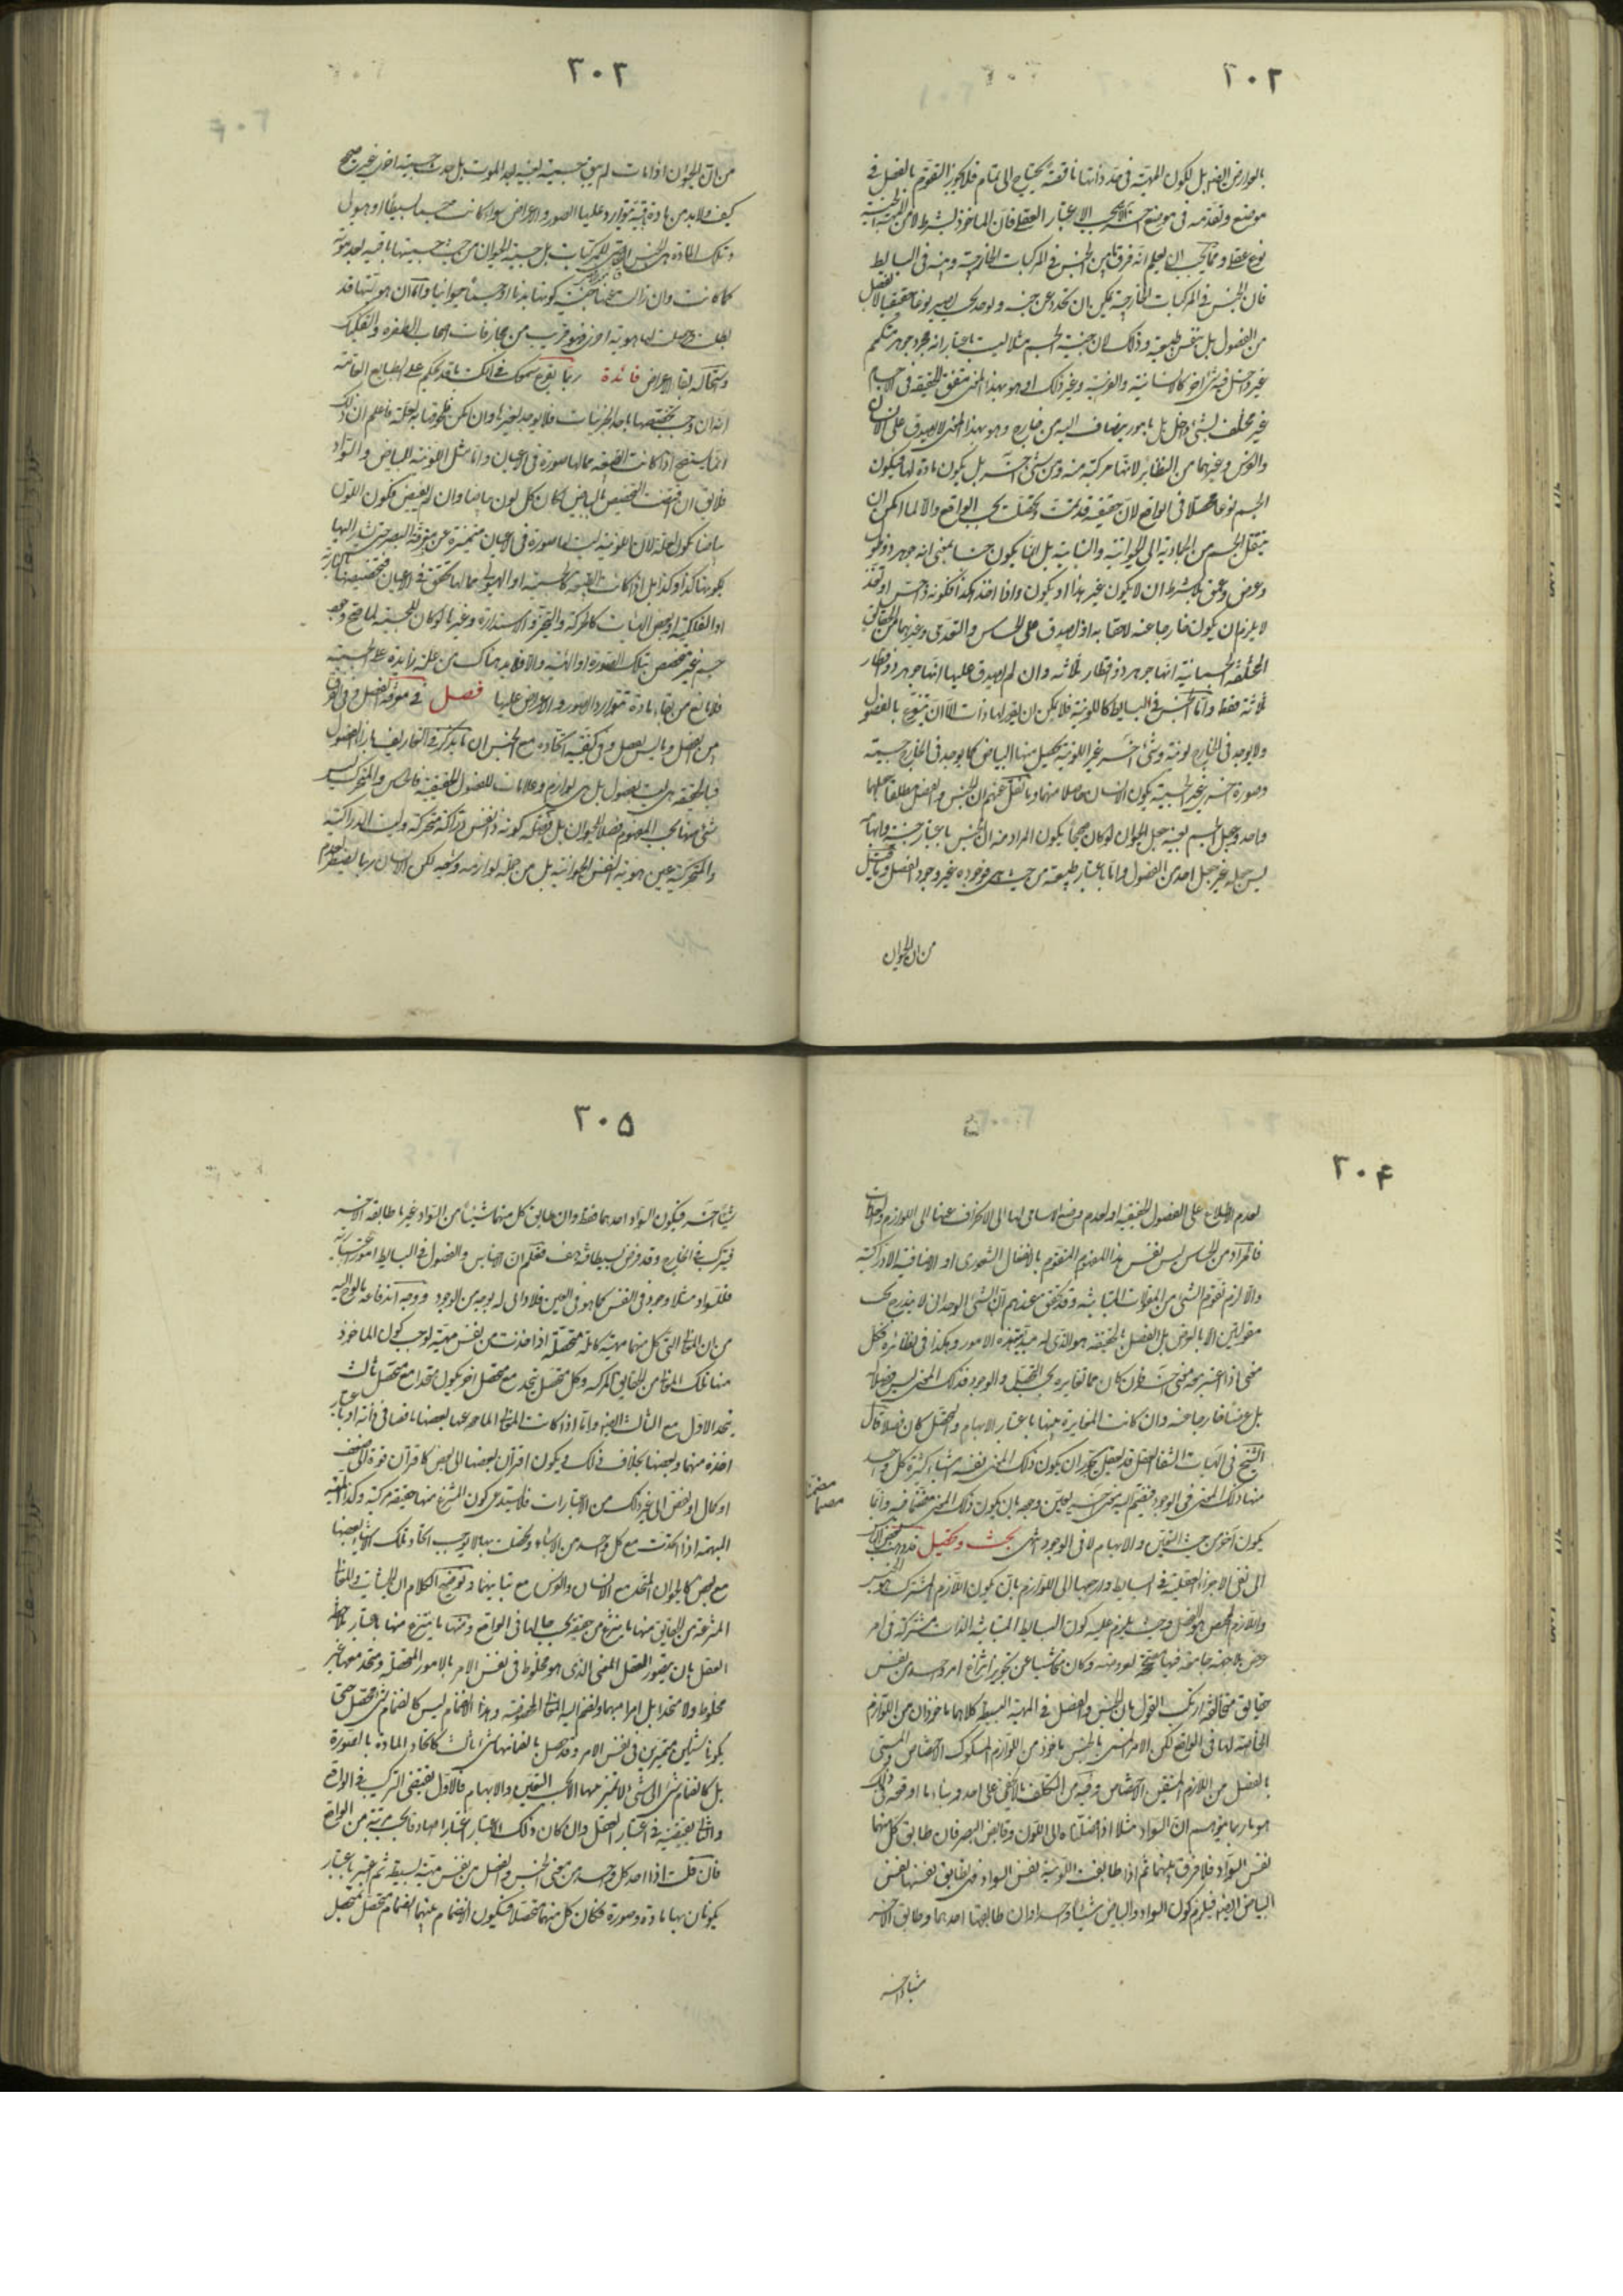 ٢٠٢
بالعوارض ايضا بل لكون المهيّة فى حدّ ذاتها ناقصة يحتاج الى تمام فلا يجوز التقوّم بالفصل فى
موضع وتقدّمه فى موضع آخر الا بحسب الاعتبار العقلى فان الماخوذ بشرط لا من المهية الجنسية
نوع عقلى ومما يجب ان يعلم انّه فرق بين الجنس فى المركبات الخارجية وبينه فى البسايط
فان الجنس فى المركبات الخارجية يمكن ان يتجرد عن جنسيته ويوخذ بحيث يصير نوعا حقيقيا لا بفصل
من الفصول بل بنفس طبيعته وذلك لان جنسية الجسم مثلا ليست باعتبار انه مجرد جوهر متكمم
غير داخل فيه شى آخر كالانسانية والفرسية وغير ذلك اذ هو بهذا المعنى متفق الحقيقة فى الاجسام
غير مختلف بشئ داخل بل بامور ينضاف اليه من خارج وهو بهذا المعنى لا يصدق على الانسان
والفرس وغيرهما من النظائر لانها مركبة منه ومن شئ آخر بل يكون مادة لها فيكون
الجسم نوعا محصلا فى الواقع لان حقيقته قد تمت وتحصلت بحسب الواقع والا لما امكن ان
ينتقل الجسم من الجمادية الى الحيوانية والنباتية بل انما يكون جنسا بمعنى انه جوهر ذو طول
وعرض وعمق بلا شرط ان لا يكون غير هذا او يكون واذا اخذ هكذا فكونه ذا حس او تغذ
لا يلزم ان يكون خارجا عنه لاحقا به اذ يصدق على الحساس والمتغذى وغيرهما من الحقايق
المختلفة الجسمانية انها جوهر ذو اقطار ثلاثه وان لم يصدق عليها انها جوهر ذو اقطار
ثلاثة فقط وامّا الجنس فى البسايط كاللونية فلا يمكن ان يقرر لها ذات الا ان يتنوع بالفصول
ولا يوجد فى الخارج لونية وشئ آخر غير اللونية يحصل منها البياض كما يوجد فى الخارج جسمية
وصورة اخرى غير الجسمية يكون الانسان حاصلا منهما وما نقل عنهم ان الجنس والفصل مطلقا جعلهما
واحد وجعل الجسم بعينه جعل الحيوان لو كان صحيحا يكون المراد منه ان الجنس باعتبار جنسيته وابهامه
ليس جعله غير جعل احد من الفصول واما باعتبار طبيعته من حيث هى فوجوده غير وجود الفصل وما قيل
من ان الحيوان
٢٠٣
من ان الحيوان اذا مات لم يبق جسميته بعينه بعد الموت بل حدث جسمية اخرى غير صحيح
كيف ولابد من مادة باقية يتوارد عليها الصور والاعراض سواء كانت جسما بسيطا او هيولى
وتلك المادة هى الجنس الاقصى للمركبات بل جسمية الحيوان من حيث جسميتها باقيه بعد موته
كما كانت وان زالت عنها حيثية كونها بدنا او جسما حيوانيا واما ان هويتها قد
بطلت وحصلت لها هوية اخرى فهو قريب من مجازفات اصحاب الطفره والتفكيك
واستحالة بقاء الاعراض فائدة ربما يقرع سمعك فى الكتب ما قد يحكم على الطبايع العامّة
انه ان وجب تخصصها باحد الجزئيات فلا يوجد لغيرها وان امكن فلحوقها به لعلّة فاعلم ان ذلك
انما يتضح اذا كانت الطبيعة مما لها صورة فى الاعيان واما مثل اللونية للبياض والسواد
فلا يق ان اقتضت التخصيص بالبياض لكان كل لون بياضا وان لم يقتض فيكون اللون
بياضا يكون لعلة لان اللونية ليست لها صورة فى الاعيان متميزة عن مفرقية البصر حتى يشار اليها
بكونها كذا وكذا بل اذا كانت الطبيعة كالجسمية او الهيولى مما لها تحقق فى الاعيان فتخصيصها بالنارية
او الفلكية او بعض الهيئات كالحركة والتحيز والاستدارة وغيرها لو كان للجسمية لما صح وجود
جسم غير متخصص بتلك الصورة او الهيئة والا فلابد هناك من علة زايدة على الجسمية
فلا مانع من بقاء مادة تتوارد الصور والاعراض عليها فصل فى معرفة الفصل وفى الفرق
بين الفصل وما ليس بفصل وفى كيفية اتحاده مع الجنس ان ما يذكر فى التعاريف بازاء الفصول
فبالحقيقة هى ليست بفصول بل هى لوازم وعلامات للفصول الحقيقية فالحساس والمتحرك ليس
شئ منهما بحسب المفهوم فصلا للحيوان بل فصله كونه ذا نفس دراكة متحركة وليست الدراكية
والمتحركية عين هوية النفس الحيوانية بل من جملة لوازمه وشعبه لكن الانسان ربما يضطر لعدم
٢٠۴
لعدم الاطلاع على الفصول الحقيقية او لعدم وضع الاسامى لها الى الانحراف عنها الى اللوازم والعلامات
فالمراد من الحساس ليس نفس هذا المفهوم المتقوم بالانفعال الشعورى او الاضافية الادراكية
والا لزم تقوّم الشئ من المقولات المتباينة وقد تحقق عندهم ان الشئ الوحدانى لا يندرج تحت
مقولتين الا بالعرض بل الفصل بالحقيقة هو الذى له مبدئية هذه الامور وهكذا فى نظائره فكل
معنى اذا اعتبر معه معنى آخر فان كان مما تغايره بحسب التحصل والوجود فذلك المعنى ليس فصلا
بل عرضا خارجا عنه وان كانت المغايرة بينهما باعتبار الابهام والتحصل كان فصلا قال
الشيخ فى الهيات الشفا العقل قد يعقل معنى يجوز ان يكون ذلك المعنى نفسه اشياء كثيرة كل واحد
منها ذلك المعنى فى الوجود فيضم اليه معنى آخر يعين وجوده بان يكون ذلك المعنى متضمنا فيه وانما
مضمنا
يكون آخر من حيث التعين والابهام لا فى الوجود انتهى بحث وتحصيل قد ذهب بعض الناس
الى نفى الاجزاء العقلية فى البسايط وارجعها الى اللوازم بان يكون اللازم المشترك هو الجنس
واللازم المختص هو الفصل وحيث يلزم عليه كون البسايط المتباينة الذات مشتركة فى امر
عرضى بلا جهة جامعة فيها مصححة لعروضه وكان متحاشيا عن تجويز انتزاع امر واحد من نفس
حقايق متخالفة ارتكب القول بان الجنس والفصل فى المهيّة البسيطة كلاهما ماخوذان من اللوازم
الخاصة لها فى الواقع لكن الامر المسمى بالجنس ماخوذ من اللوازم المشكوك الاختصاص والمسمى
بالفصل من اللازم المتيقن الاختصاص وفيه من التكلف ما لا يخفى على احد وبناء ما اوقعه فى ذلك
هو ما ربما يتوهم ان السواد مثلا اذا فصلناه الى اللون وقابض البصر فان طابق كل منهما
نفس السواد فلا فرق بينهما ثم اذا طابقت اللونية نفس السواد فهى يطابق بعينها نفس
البياض ايضا فيلزم كون السواد والبياض شيئا واحدا وان طابقها احدهما وطابق الآخر
شيئا آخر
٢٠۵
شيئا آخر فيكون السواد احدهما فقط وان طابق كل منهما شيئا من السواد غير ما طابقه الآخر
فيتركب فى الخارج وقد فرض بسيطا هف فعلم ان الاجناس والفصول فى البسايط امور اعتبارية
فللسواد مثلا وجود فى النفس كما هو فى العين فلا ذاتى له بوجه من الوجوه ووجه اندفاعه ما لوّح اليه
من ان المعانى التى كل منها مهية كاملة متحصلة اذا اخذت من نفس مهية توجب كون الماخوذ
منها تلك المعانى من الحقايق المركبة وكل متحصل يتحد مع متحصل آخر يكون متحدا مع متحصل ثالث
يتحد الاول مع الثالث ايضا واما اذا كانت المعانى الماخوذ عنها بعضها ناقصا فى ذاته او باعتبار
اخذه مبهما وبعضها بخلاف ذلك ويكون اقتران بعضها الى بعض كاقتران قوة الى ضعف
او كمال او نقص الى غير ذلك من الاعتبارات فلا يستدعى كون المنتزع منها حقيقة مركبة وكذا الطبيعة
المبهمة اذا اتحدت مع كل واحد من الاشياء وتحصلت بها لا يوجب اتحاد تلك الاشياء بعضها
مع بعض كالحيوان المتحد مع الانسان والفرس مع تباينهما وتوضيح الكلام ان الحيثيات والمعانى
المنتزعة من الحقايق منها ما ينتزع من حقيقة بحسب حالها فى الواقع ومنها ما ينتزع منها باعتبار ملاحظة
العقل بان يتصور العقل المعنى الذى هو مخلوط فى نفس الامر بالامور المتحصلة ومتحد معها غير
مخلوط ولا متحدا بل امرا مبهما وانضم اليه المعانى المخصوصة وهذا الانضمام ليس كانضمام شئ محصل حتى
يكونا شيئين متميزين فى نفس الامر وقد حصل بانضمامهما شئ ثالث كاتحاد المادة بالصورة
بل كانضمام شئ الى شئ لا تميز بينهما الا بحسب التعين والابهام فالاول يقتضى التركيب فى الواقع
والثانى يقتضيه فى اعتبار العقل وان كان ذلك الاعتبار اعتبارا صادقا بحسب مرتبة من الواقع
فان قلت اذا اخذ كل واحد من معنى الجنس والفصل من نفس مهية بسيطة ثم اعتبر باعتبار
يكونان بها مادة وصورة فكان كل منهما متحصلا فيكون الانضمام بينهما انضمام متحصل بمتحصل